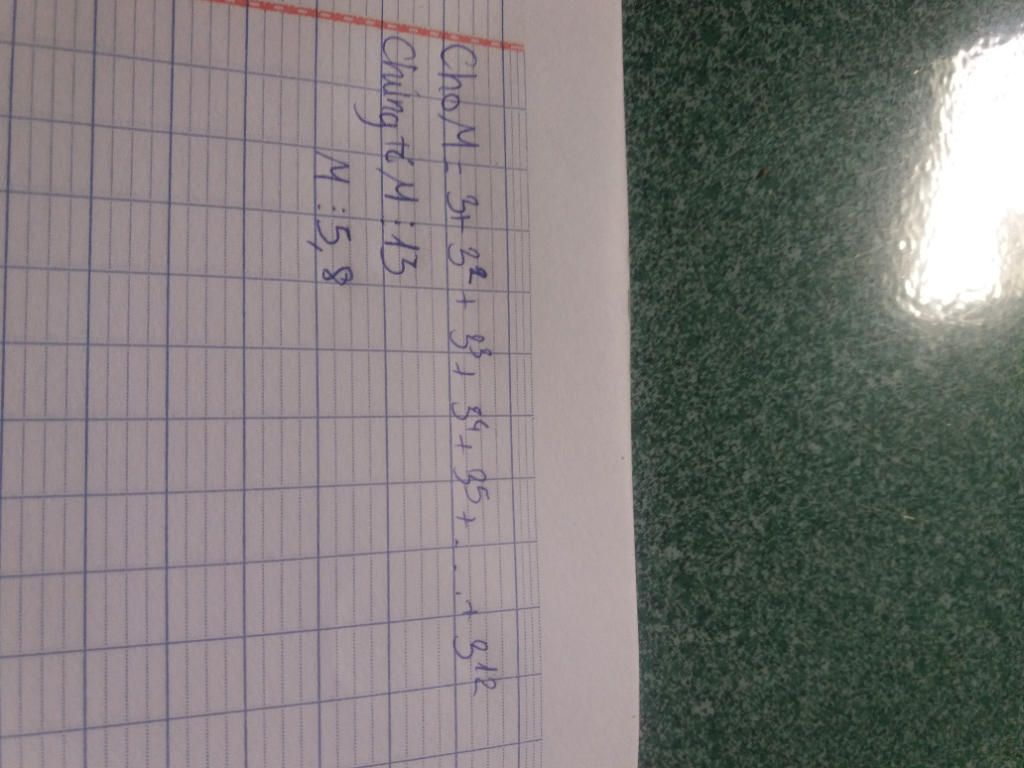 Cho M = 3 + 3² + 3³ + 3⁴ + 3⁵ + .... + 3¹²
Chứng tỏ M ⋮ 13
M ⋮ 5, 8